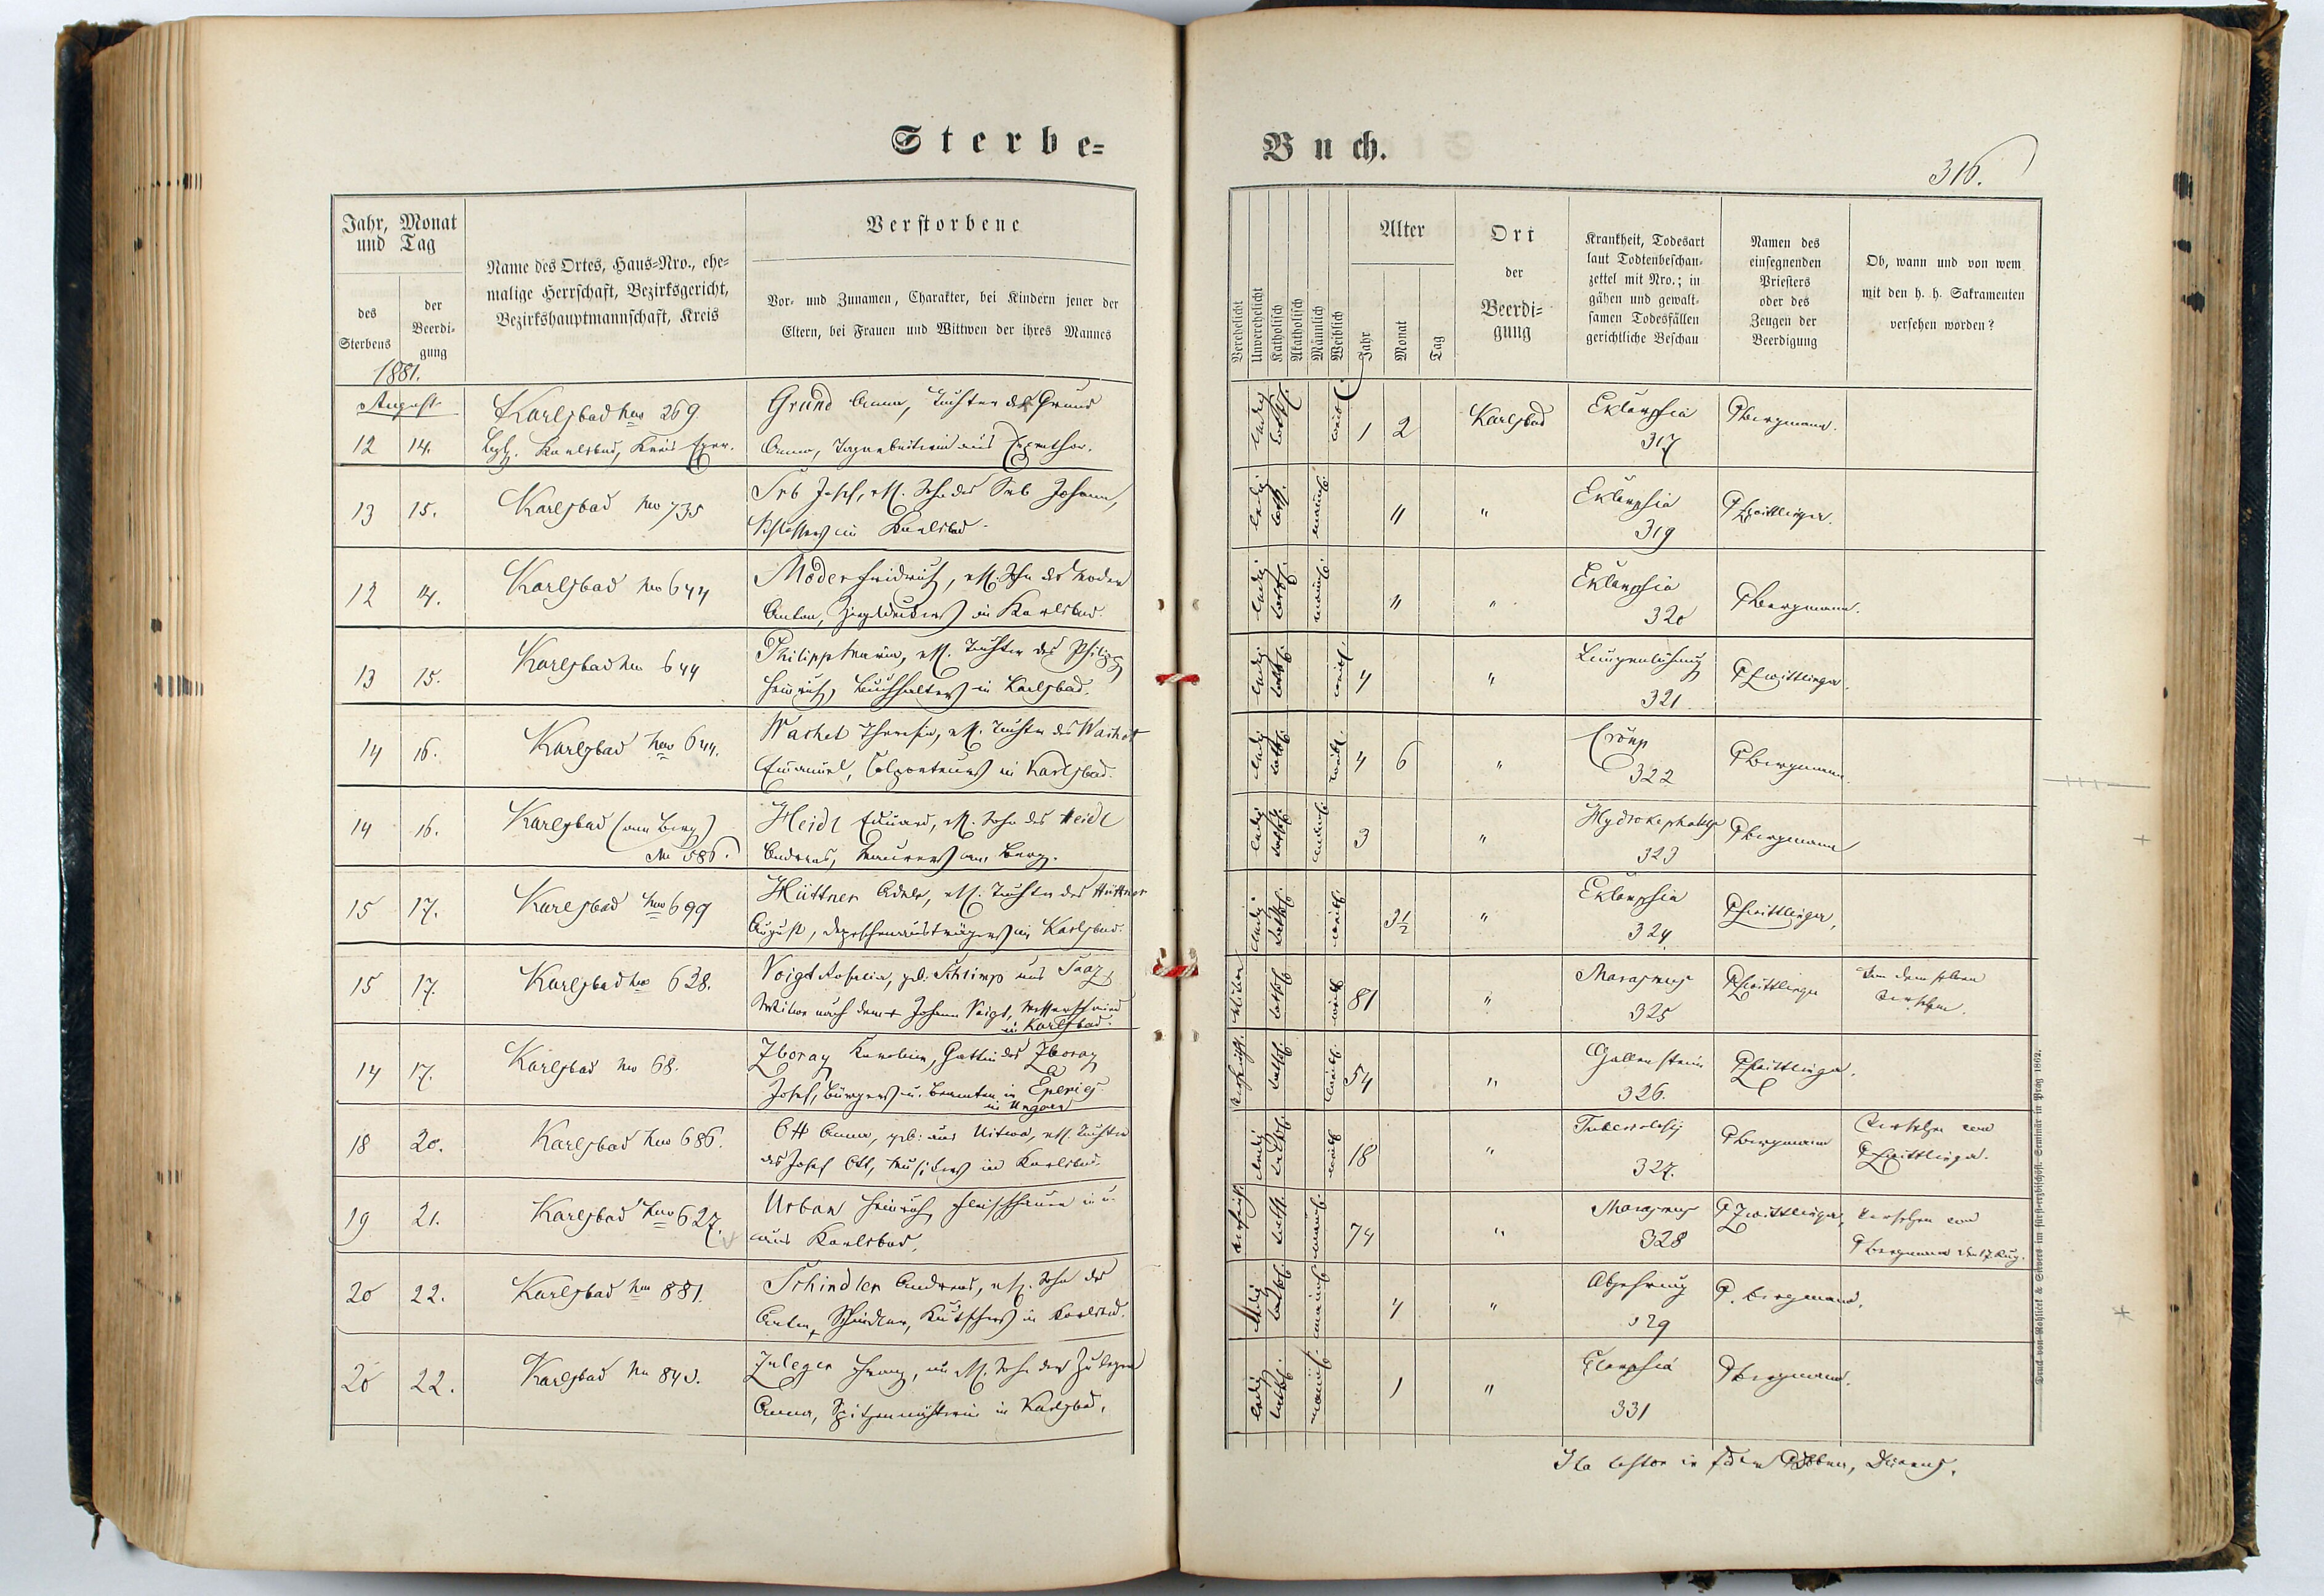 Sterbe=
Buch.
316.
Jahr, Monat und Tag
des Sterbens
der Beerdi- gung
Name des Ortes, Haus=Nro., ehe=
malige Herrschaft, Bezirksgericht,
Bezirkshauptmannschaft, Kreis
Verstorbene
Vor- und Zunamen, Charakter, bei Kindern jener der
Eltern, bei Frauen und Wittwen der ihres Mannes
Verehelicht
Unverehelicht
Katholisch
Akatholisch
Männlich
Weiblich
Alter
Jahr
Monat
Tag
Ort
der
Beerdi=
gung
Krankheit, Todesart
laut Todtenbeschau-
zettel mit Nro.; in
gähen und gewalt-
samen Todesfällen
gerichtliche Beschau
Namen des
einsegnenden
Priesters
oder des
Zeugen der
Beerdigung
Ob, wann und von wem
mit den h. h. Sakramenten
versehen worden?
1881.
August
12 14. Karlsbad No 269 Grund Anna, Tochter der Grund
Karlsbad, Kreis Eger. Anna, Tagarbeiterin aus
ledig kath. weibl. 1 2 Karlsbad Eklampsia P Bergmann.
317
13 15. Karlsbad No 735 Srb Josef, ehl. Sohn des Srb Johann,
Schlossers in Karlsbad
ledig kath. männl. 11 " Eklampsia P Zwittlinger.
319
12 14. Karlsbad No 644 Moder Friedrich, ehl. Sohn des Moder
Anton, Ziegeldeckers in Karlsbad.
ledig kath. männl. 11 " Eklampsia P Bergmann.
320
13 15. Karlsbad No 644 Philipp Maria, ehl. Tochter des Philipp
Heinrich, Buchhalters in Karlsbad.
ledig kath. weibl. 4 " Lungenlähmung P Zwittlinger.
321
14 16. Karlsbad No 644. Theresia, ehl. Tochter des
Emanuel, Colporteurs in Karlsbad.
ledig kath. weibl. 4 6 " Croup P Bergmann.
322
14 16. Karlsbad (am Berg) Heidl Eduard, ehl. Sohn des Heidl
No 586. Andreas, Maurers am Berg.
ledig kath. männl. 3 " P Bergmann
323
15 17. Karlsbad No 699 Hüttner Adele, ehl. Tochter des Hüttner
August, Depeschenausträgers in Karlsbad.
ledig kath. weibl. 3½ " Eklampsia P Zwittlinger,
324
15 17. Karlsbad No 628. Voigt Rosalia, geb. Schlimp aus Saaz,
Witwe nach dem + Johann Voigt, Messerschmied
in Karlsbad.
Witwe kath. weibl. 81 " Marasmus P Zwittlinger Von demselben
325 versehen.
14 17. Karlsbad No 68. Zboray Karolina, Gattin des Zboray
Josef, Bürgers u. Beamten in Eperies
in Ungarn
verehel. kath. weibl. 54 " Gallenstein P Zwittlinger.
326.
18 20. Karlsbad No 686. Ott Anna, geb. aus Uitwa, ehl. Tochter
des Josef Ott, Musikers in Karlsbad.
ledig kath. weibl. 18 " P Bergmann Versehen von
327. P Zwittlinger.
19 21. Karlsbad No 627. Urban Heinrich, Fleischhauer in u.
aus Karlsbad,
verehel. kath. männl. 74 " Marasmus P Zwittlinger, versehen von
328 P Bergmann den 17. Aug.
20 22. Karlsbad No 881. Schindler Andreas, ehl. Sohn des
Anton Schindler, Kutschers in Karlsbad.
ledig kath. männl. 4 " Abzehrung P. Bergmann.
329
20 22. Karlsbad No 843. Zuleger Franz, unehl. Sohn der Zuleger
Anna, Spitzennähterin in Karlsbad.
ledig kath. männl. 1 " P Bergmann.
331
Druck von Rohliček & Sievers im fürsterzbischöfl. Seminär in Prag 1862.